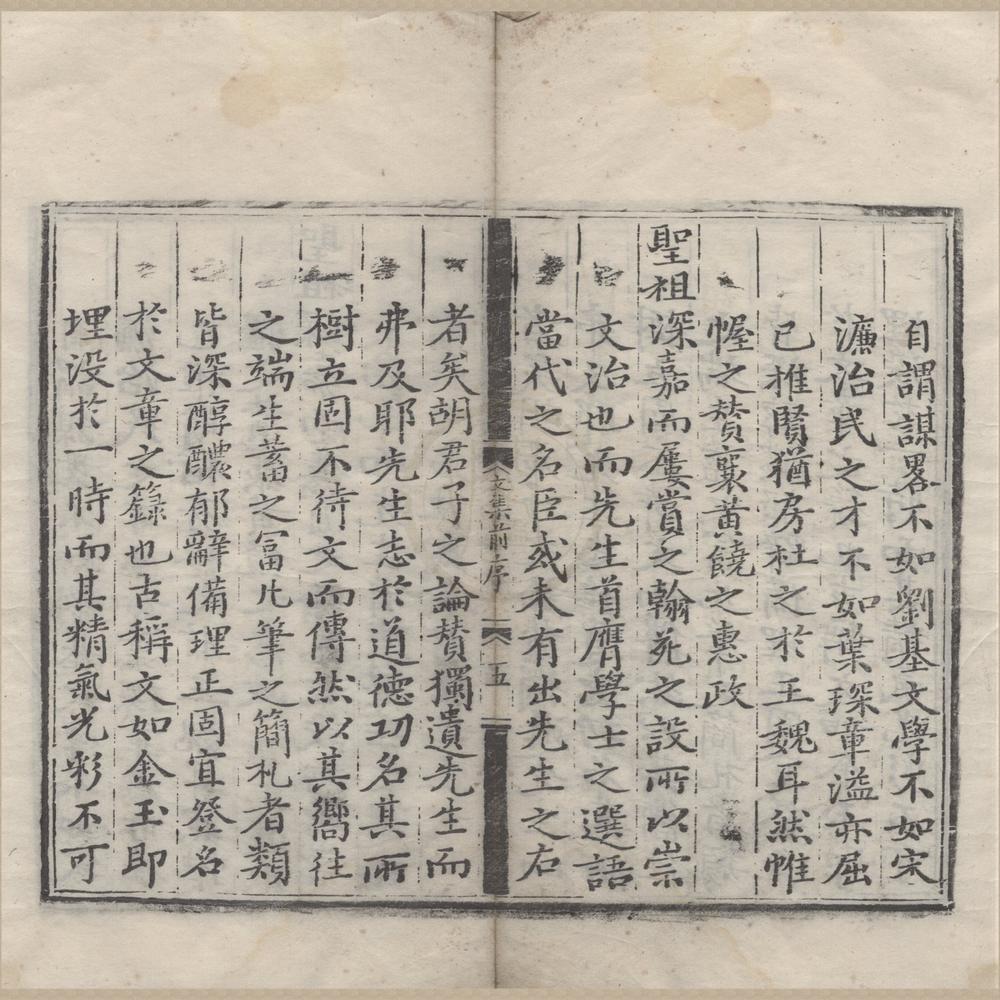 自謂謀畧不如劉基文學不如宋
濂治民之才不如葉琛章溢亦屈
已推賢猶房杜之於王魏耳然帷
幄之賛襄黃饒之惠政
聖祖深嘉而屢賞之翰苑之設所以崇
文治也而先生首膺學士之選語
當代之名臣或未有出先生之右
文集前序
五
者矣胡君子之論賛獨遺先生而
弗及耶先生志於道德功名其所
樹立固不待文而傳然以其嚮往
之端生蓄之富凡筆之簡札者類
皆深醇醲郁辭備理正固宜登名
於文章之籙也古稱文如金玉即
埋没於一時而其精氣光彩不可